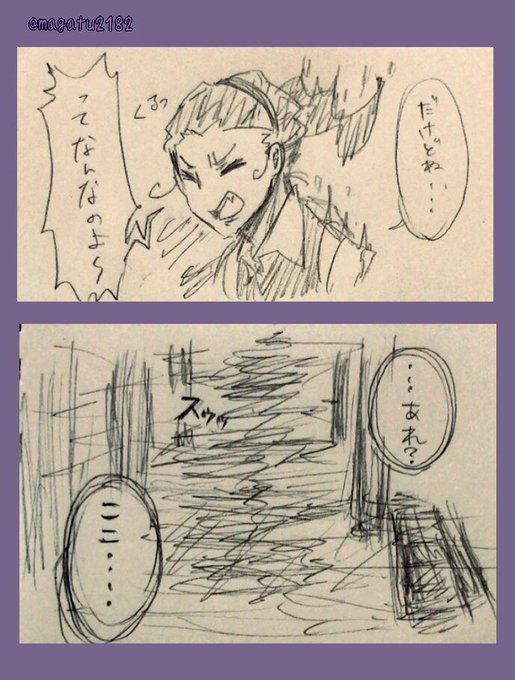 @magatu2182
だけどね…
くるっ
ってなんなのよ〜
…あれ?
スゥゥッ
ここ……